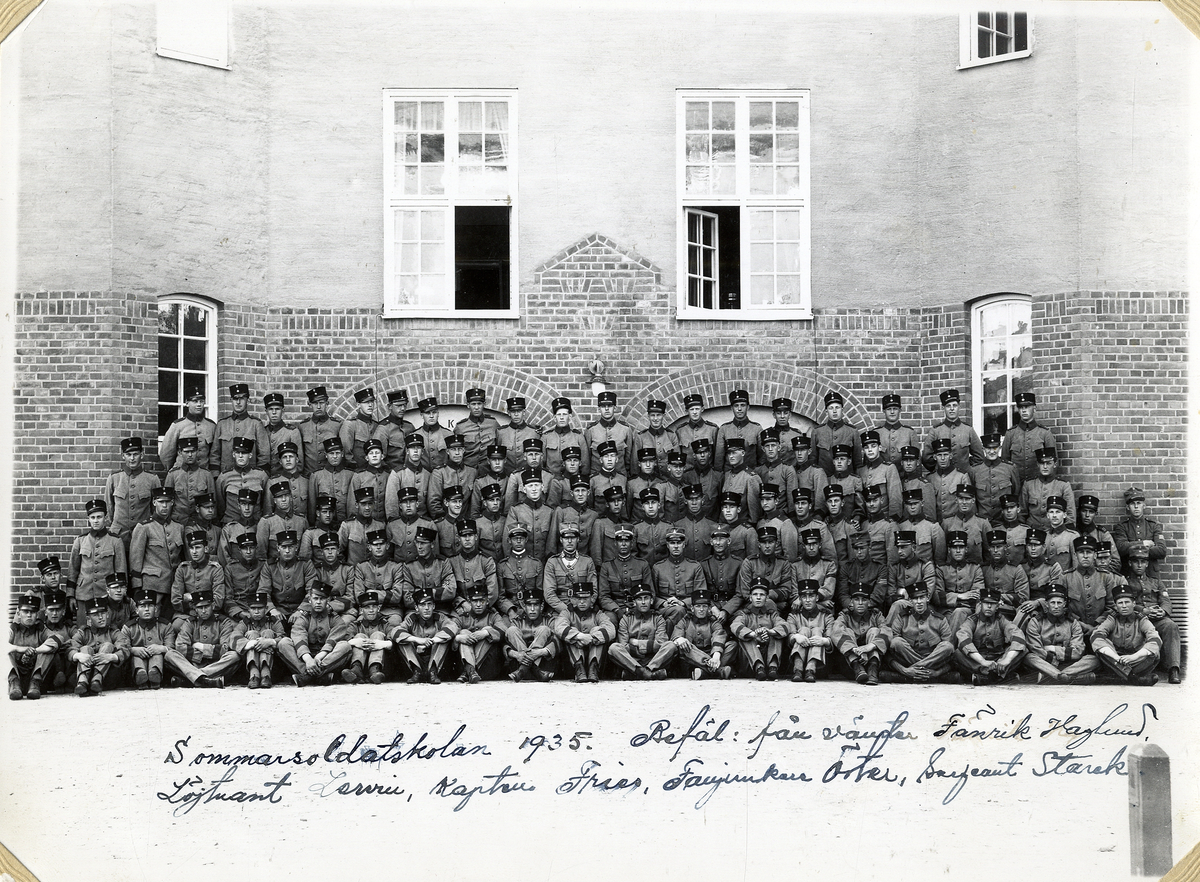 K
Sommarsoldatskolan 1935. Befäl: från vänster Fänrik Haglund,
Löjtnant Kapten Fries, Fanjunkare Öster, Sergeant Starck